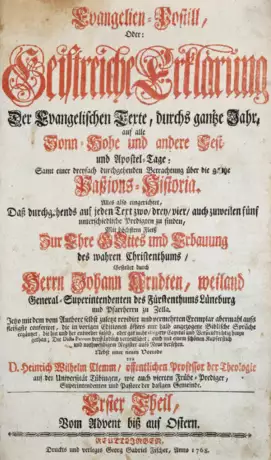 Evangelien=Postill,
Oder:
Geistreiche Erklärung
Der Evangelischen Texte, durchs gantze Jahr,
auf alle
Sonn= Hohe und andere Fest=
und Apostel=Tage:
Samt einer dreyfach durchgehenden Betrachtung über die gantze
Paßions=Historia.
Alles also eingerichtet,
Daß durchgehends auf jeden Text zwo/ drey/ vier/ auch zuweilen fünf
unterschiedliche Predigten zu finden,
Mit höchstem Fleiß
Zur Ehre GOttes und Erbauung
des wahren Christenthums/
Gestellet durch
Herrn Johann Arndten, weiland
General=Superintendenten des Fürstenthums Lüneburg
und Pfarrherrn zu Zelle,
Jetzo mit dem vom Authore selbst zuletzt revidirt und vermehrten Exemplar abermahl aufs
fleißigste conferirt, die in vorigen Editionen öfters nur bald angezogene Biblische Sprüche
Nebst einer neuen Vorrede
D. Heinrich Wilhelm Clemm/ öffentlichen Professor der Theologie
auf der Universität Tübingen, wie auch vierten Frühe=Prediger,
Superintendenten und Pastore der dasigen Gemeinde.
Erster Theil,
Vom Advent biß auf Ostern.
REUTLINGEN,
Druckts und verlegts Georg Gabriel Fischer, Anno 1768.